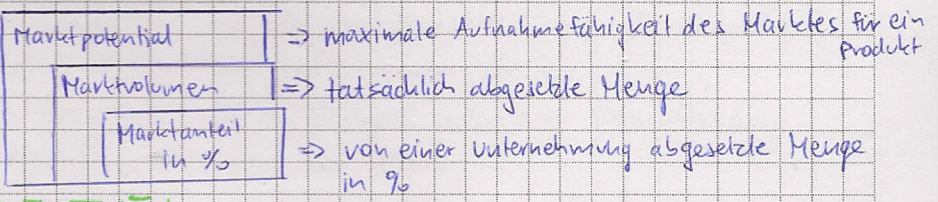 Marktpotential => maximale Aufnahmefähigkeit des Marktes für ein
Produkt
Marktvolumen => tatsächlich abgesetzte Menge
Marktanteil
in % => von einer Unternehmung abgesetzte Menge
in %